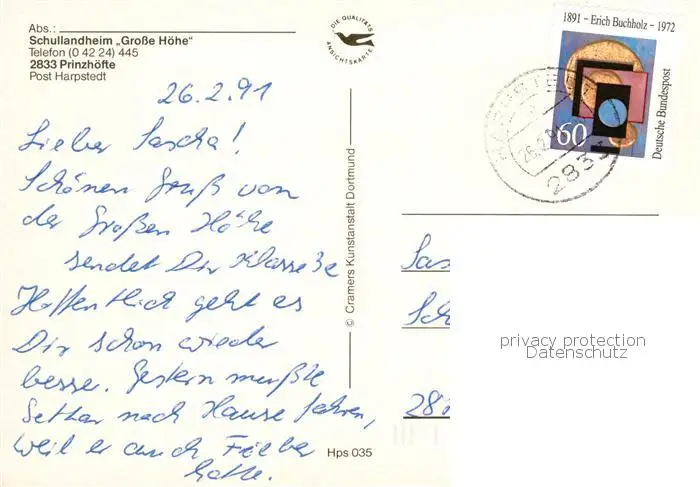 Abs.:
Schullandheim „Große Höhe“
Telefon (0 42 24) 445
2833 Prinzhöfte
Post Harpstedt
DIE QUALITÄTS
ANSICHTSKARTE
1891 – Erich Buchholz – 1972
60
Deutsche Bundespost
26.2.91
2833
26.2.91
Lieber Sascha!
Schönen Gruß von
der Großen Höhe
sendet Dir Klasse 3c
Hoffentlich geht es
Dir schon wieder
besser. Gestern mußte
nach Hause fahren,
weil er auch Fieber
hatte.
© Cramers Kunstanstalt Dortmund
Hps 035
Sas
Sch
28
privacy protection
Datenschutz